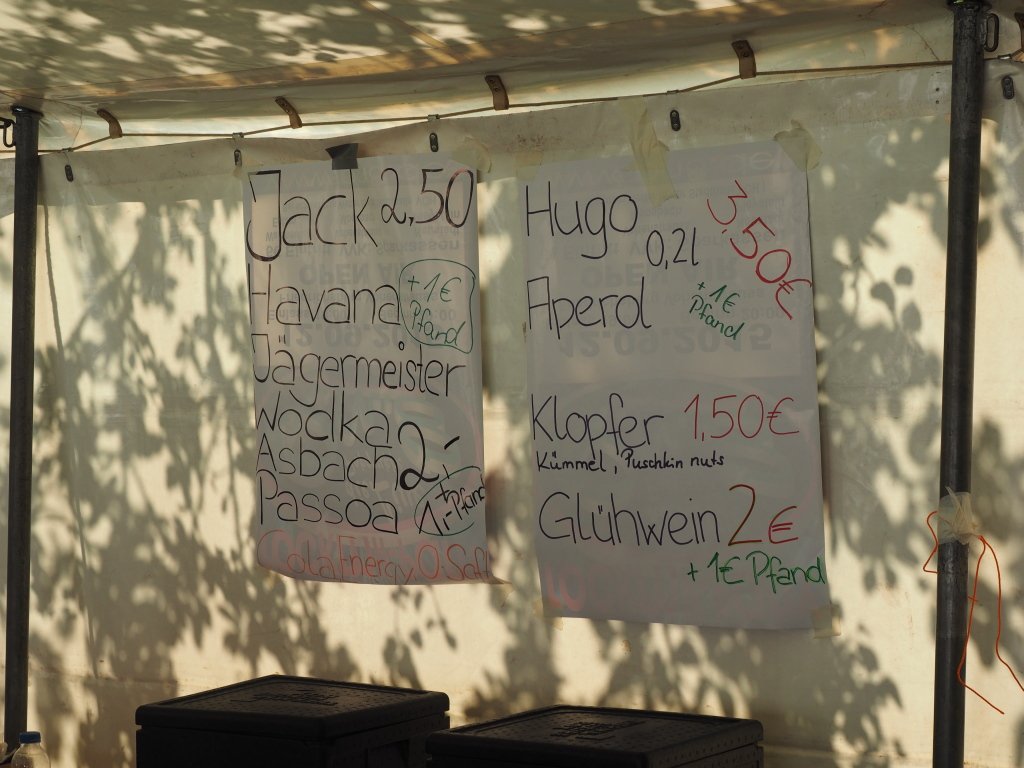 Jack 2,50
Havana + 1€
Pfand
Jägermeister
Wodka
Asbach 2,-
Passoa + 1,- Pfand
Cola, Energy, O-Saft
Hugo 3,50€
0,2l
Aperol + 1€
Pfand
Klopfer 1,50€
Kümmel, Puschkin nuts
Glühwein 2€
+ 1€ Pfand
OPEN AIR
12.09.2015